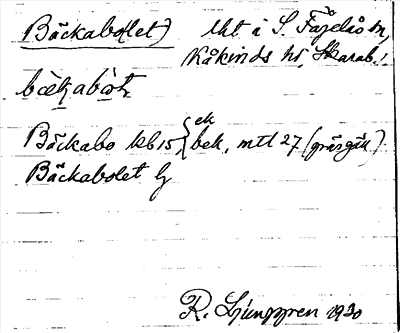 Bäckabo(let) lht i S. Fågelås sn,
Kåkinds hd, Skarab. l.
bækabòt
Bäckabo kb 15 { ek
bek, mtl 27 (gräsgå[...]).
Bäckabolet
R. Ljunggren 1930